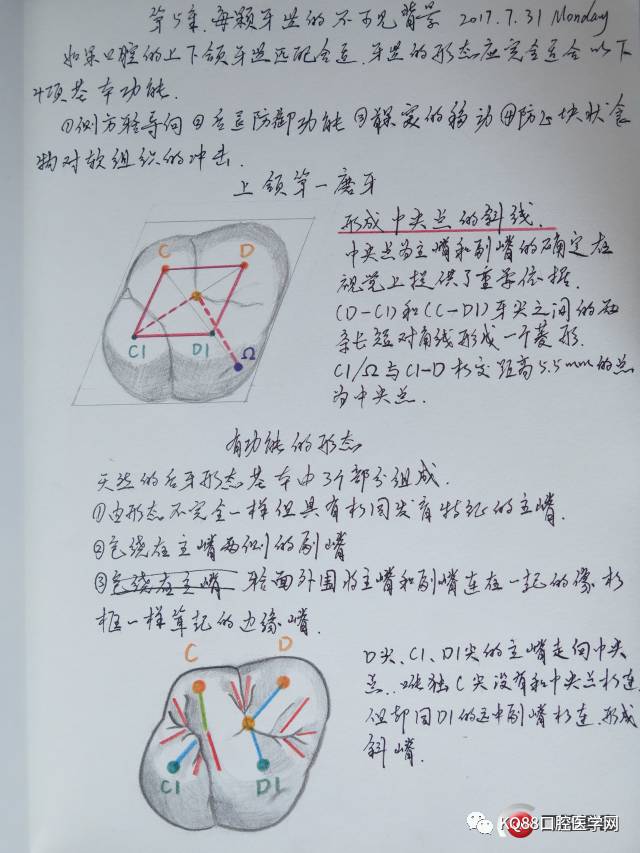 第5集.每颗牙齿的不可见背景 2017.7.31 Monday
如果口腔的上下颌牙齿匹配合适.牙齿的形态应完全适合以下
4项基本功能.
①侧方轻导向 ②后退防御功能 ③探索的移动 ④防止块状食
物对软组织的冲击.
上颌第一磨牙
C
D
C1
D1
Ω
形成中央点的斜线.
中央点为主嵴和副嵴的确定在
视觉上提供了重要依据.
(D-C1)和(C-D1)牙尖之间的两
条长短对角线形成一个菱形.
C1/Ω与C1-D相交距离5.5mm的点
为中央点.
有功能的形态
天然的后牙形态基本由3个部分组成.
①由形态不完全一样但具有相同发育特征的主嵴.
②包绕在主嵴两侧的副嵴
③包绕在主嵴 𬌗面外围将主嵴和副嵴连在一起的像相
框一样耸起的边缘嵴.
C
D
C1
D1
D尖、C1、D1尖的主嵴走向中央
点.唯独C尖没有和中央点相连
但却同D1的远中副嵴相连.形成
斜嵴.
KQ88口腔医学网